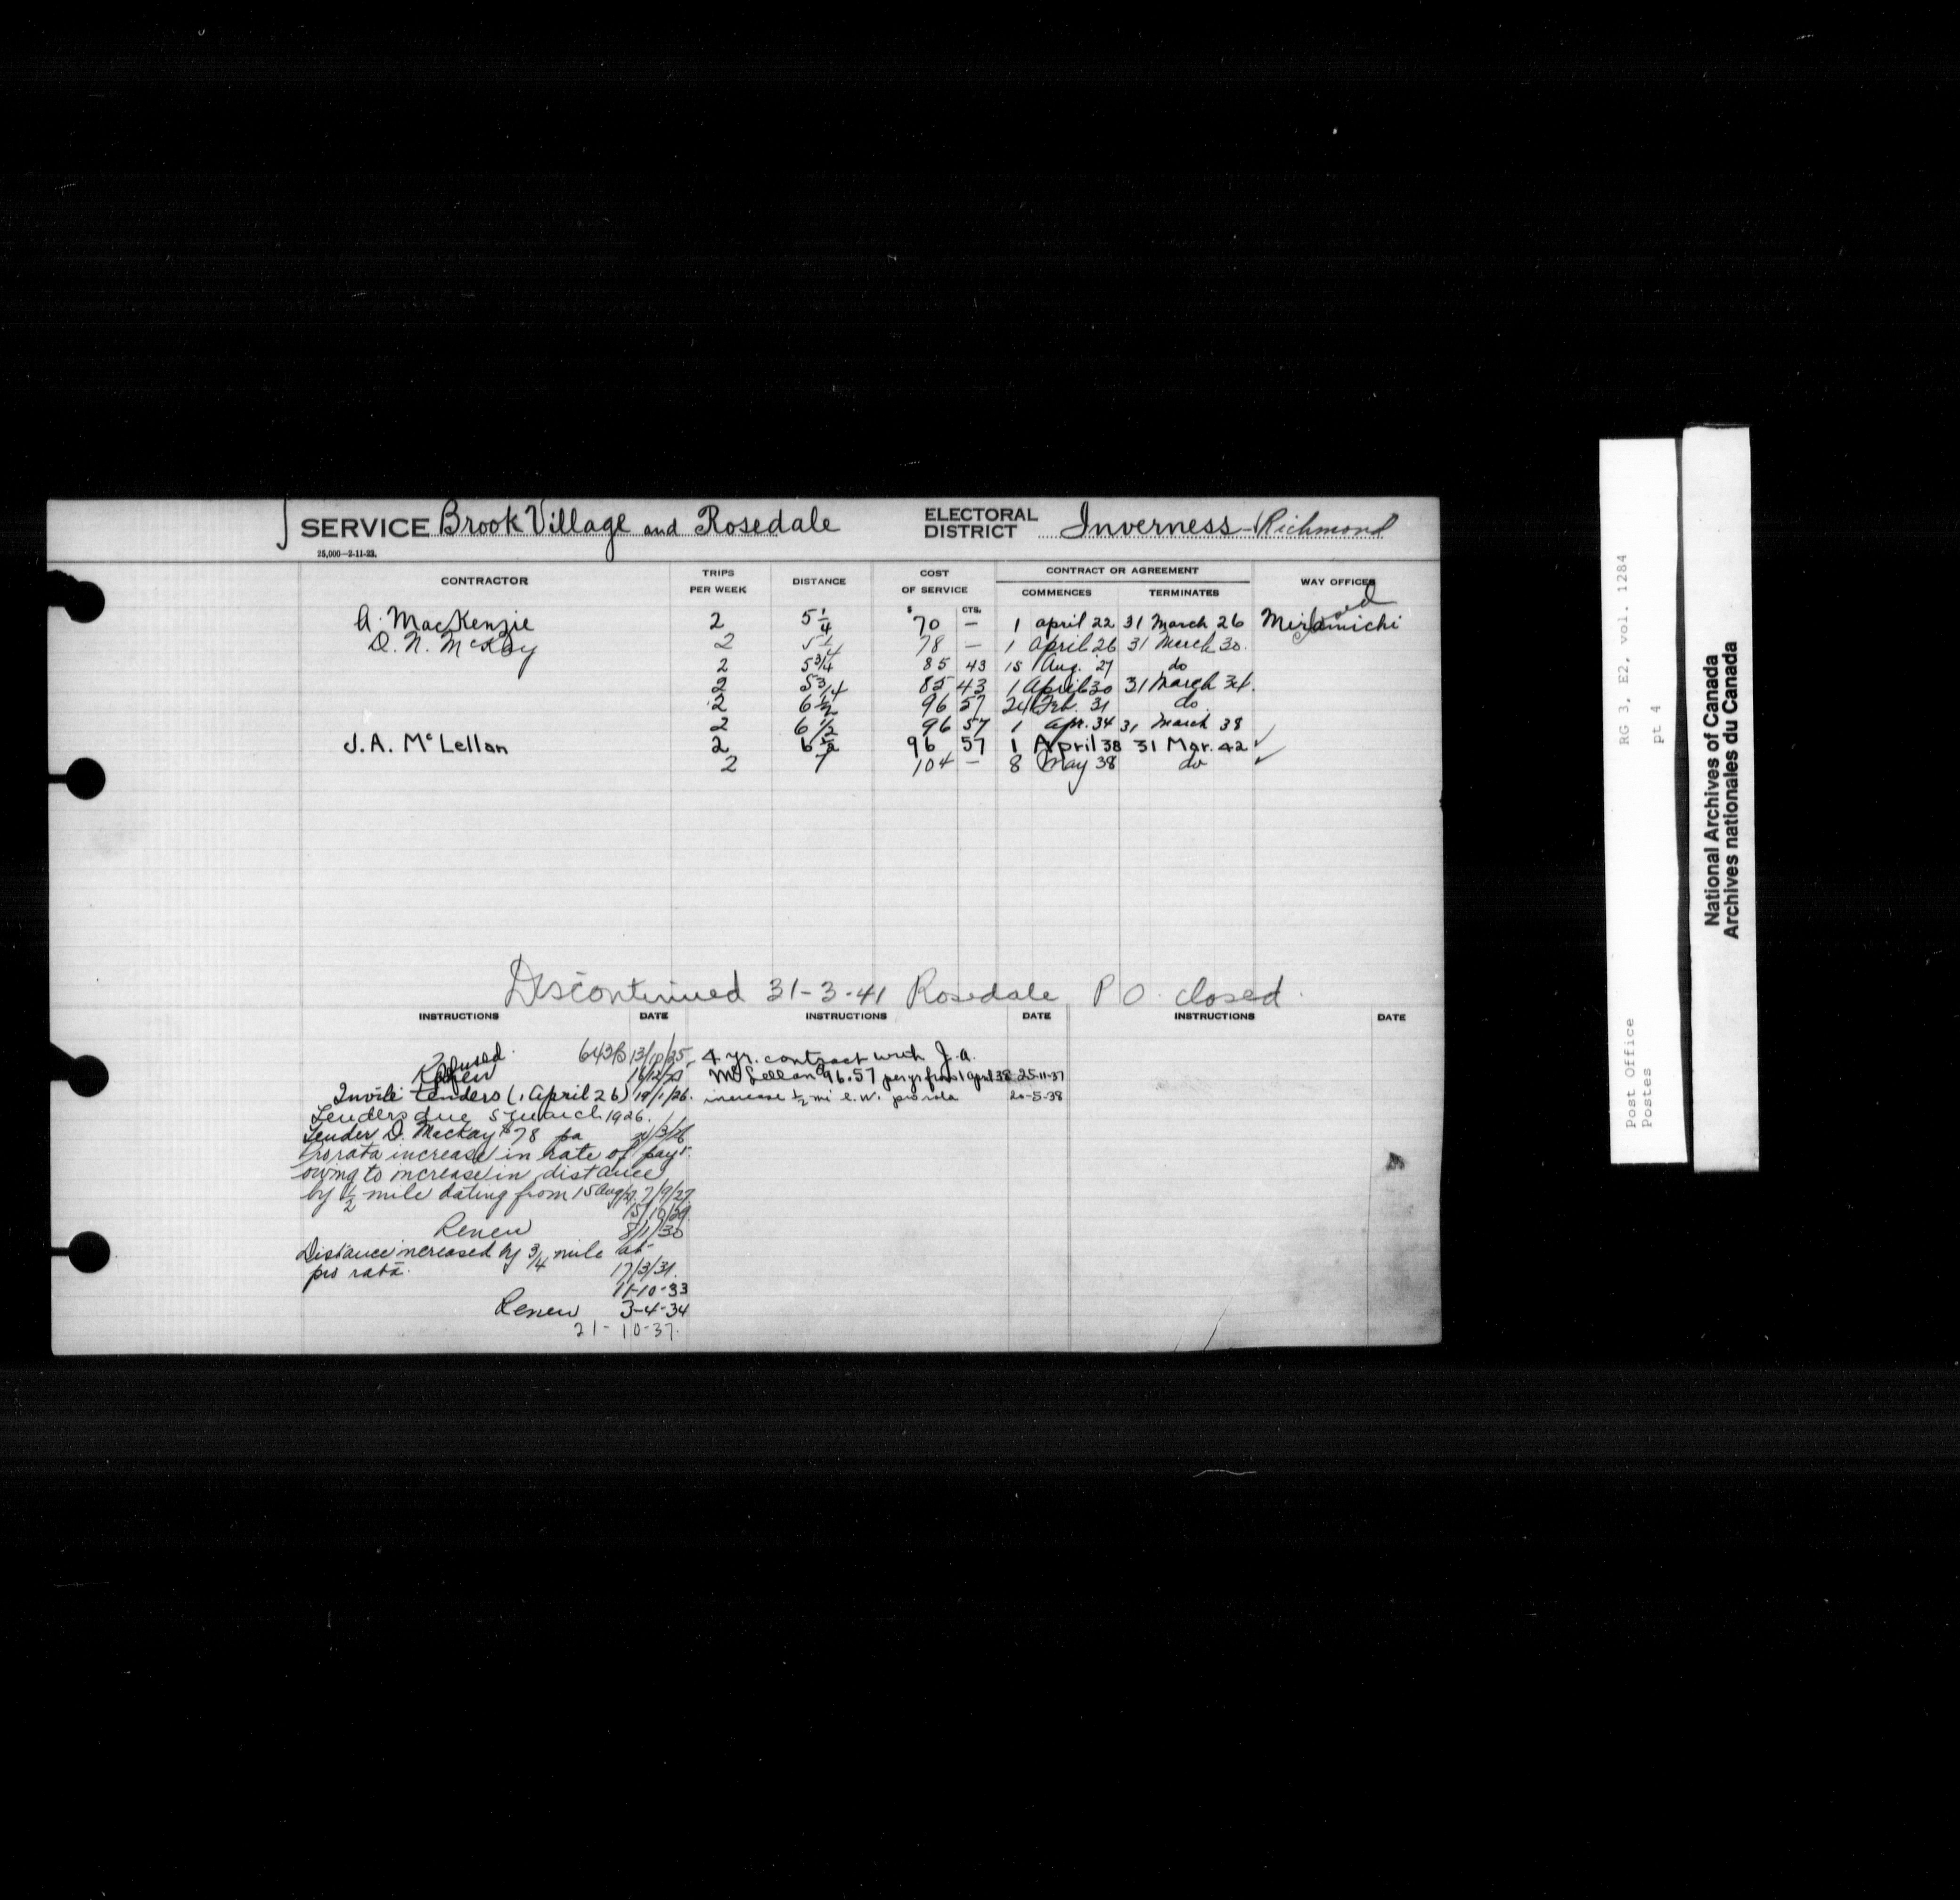 SERVICE Brook Village and Rosedale ELECTORAL DISTRICT Inverness-Richmond
25,000-2-11-23.
CONTRACTOR TRIPS PER WEEK DISTANCE COST OF SERVICE CONTRACT OR AGREEMENT WAY OFFICES
COMMENCES TERMINATES
$ CTS.
A. MacKenzie 2 5 1/4 70 — 1 April 22 31 March 26 Miramichi closed
D. N. McKay 2 5 1/4 78 — 1 April 26 31 March 30.
2 5 3/4 85 43 15 Aug. 27 do
2 5 3/4 85 43 1 April 30 31 March 34.
2 6 1/2 96 57 24 Feb. 31 do.
2 6 1/2 96 57 1 Apr. 34 31 March 38
J. A. McLellan 2 6 1/2 96 57 1 April 38 31 Mar. 42 ✓
2 7 104 — 8 May 38 do ✓
Discontinued 31-3-41 Rosedale P.O. closed.
INSTRUCTIONS DATE INSTRUCTIONS DATE INSTRUCTIONS DATE
643B 13/10/25
Refused.
Renew 16/12/25
Invite tenders (1 April 26) 19/1/26.
Tenders due 5 March 1926.
Tender D. MacKay $78 pa /3/26
Prorata increase in rate of payt.
owing to increase in distance
by 1/2 mile dating from 15 Aug/27. 7/9/27
15/10/29.
Renew 8/1/30
Distance increased by 3/4 mile at
pro rata. 17/3/31.
11-10-33
Renew 3-4-34
21-10-37.
4 yr. contract with J. A.
McLellan $96.57 per yr from 1 April 38 25-11-37
increase 1/2 mi e.w. pro rata 20-5-38
Post Office RG 3, E2, vol. 1284
Postes pt 4
National Archives of Canada
Archives nationales du Canada